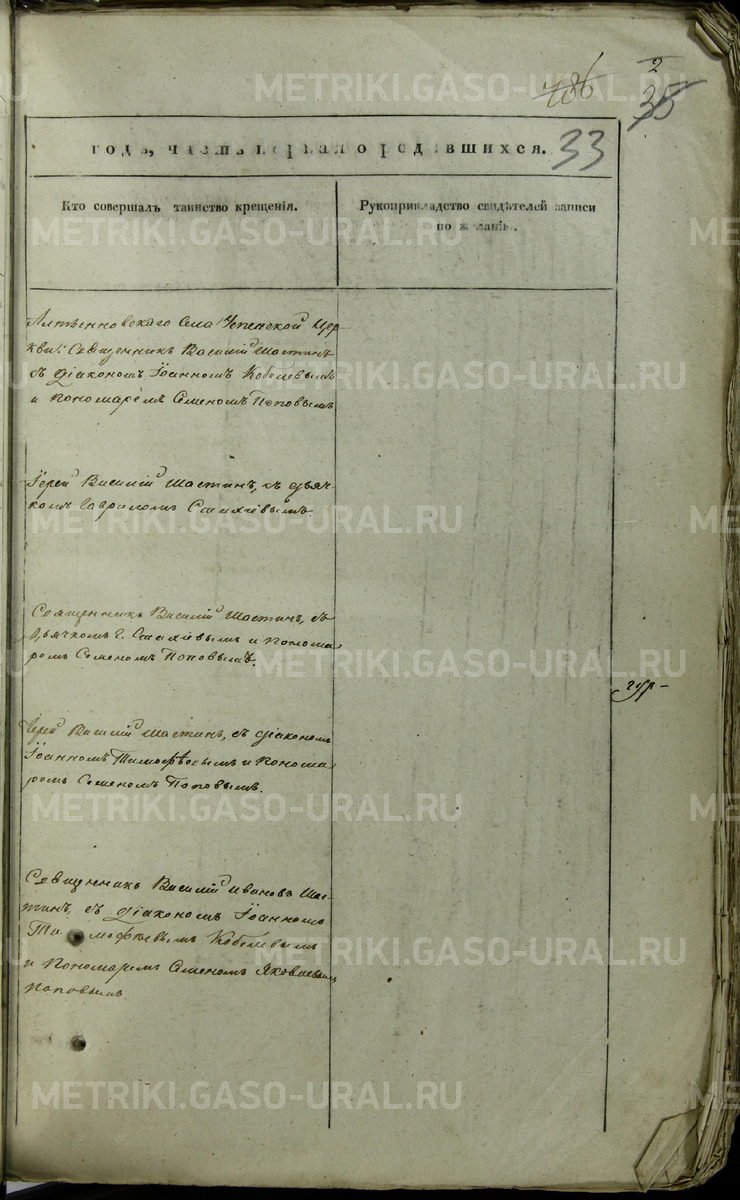 2
486
35
годъ, часть первая о родившихся. 33
Кто совершалъ таинство крещенія.
Рукоприкладство свидѣтелей записи
по желанію.
села Успенской Цер-
кви: Священникъ Василій Шастинъ
съ діакономъ Іоанномъ Кобелевымъ
и пономаремъ Семеномъ Поповымъ
Іерей Василій Шастинъ, съ дьяч-
комъ Гавриломъ Стахіевымъ
Священникъ Василій Шастинъ, съ
дьячкомъ Г. Стахіевымъ и понома-
ремъ Семеномъ Поповымъ.
Іерей Василій Шастинъ, съ діакономъ
Іоанномъ Тимофѣевымъ и понома-
ремъ Семеномъ Поповымъ.
Священникъ Василій Ивановъ Шас-
тинъ, съ діакономъ Іоанномъ
Тимофѣевымъ Кобелевымъ
и пономаремъ Семеномъ Яковлевымъ
Поповымъ.
METRIKI.GASO-URAL.RU